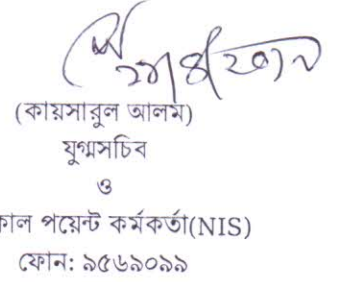 (কায়সারুল আলম)
যুগ্মসচিব
ও
পয়েন্ট কর্মকর্তা(NIS)
ফোন: ৯৫৬৯০৯৯